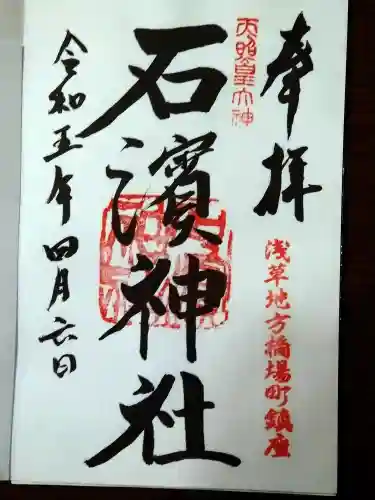 奉拝
天照皇大神
浅草地方橋場町鎮座
石濱神社
令和五年四月六日